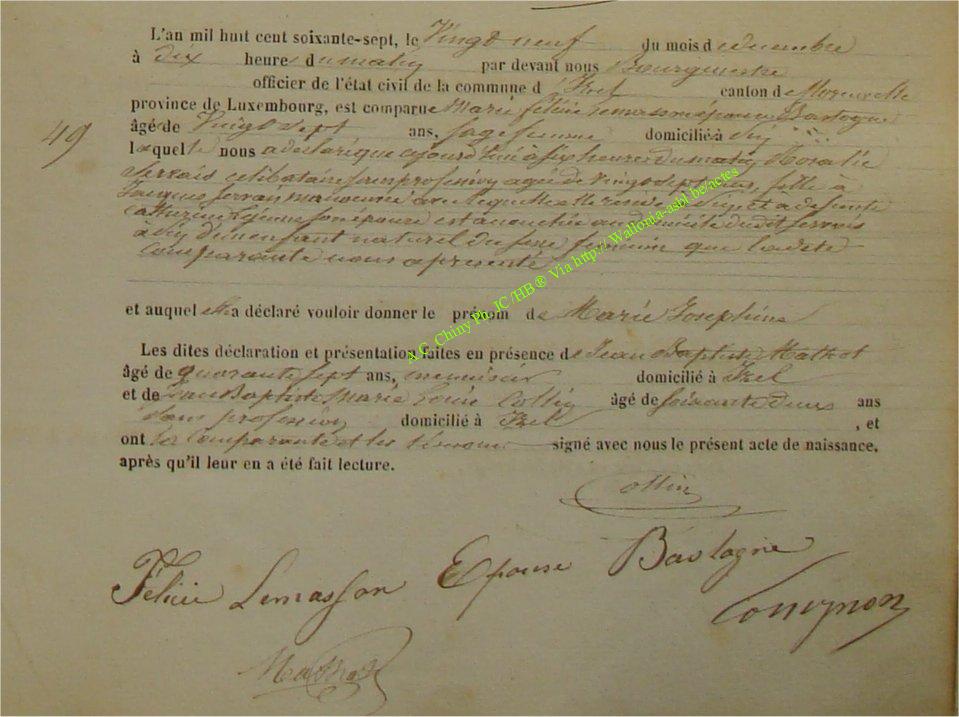 L'an mil huit cent soixante-sept, le Vingt neuf du mois d edecembre
à dix heure dumatin par devant nous Bourgmestre
officier de l'état civil de la commune d 'Izel canton de
province de Luxembourg, est comparue Marie félicie Lemasson épouse Bastogne
âgé de Vingt sept ans, sage femme domicilié à
49
laquelle nous a déclaré que cejourd'hui à six heures du matin Rosalie
Servais célibataire sans profession agé de vingt sept ans, fille à
Jacques Servais manoeuvre avec lequel elle reste à et a defunte
catherine son épouse est accouchée au domicile dudit Servais
à d'un enfant naturel du sexe féminin que ladite
comparante nous a présenté
et auquel elle a déclaré vouloir donner le prénom de Marie Josephine
Les dites déclaration et présentation faites en présence de Jean Baptiste Mathot
âgé de quarante sept ans, menuisier domicilié à Izel
et de Jean Baptiste Marie Louis Collin âgé de soixante deux ans
sans profession domicilié à Izel , et
ont les comparante et les témoins signé avec nous le présent acte de naissance,
après qu'il leur en a été fait lecture.
Collin
Félicie Lemasson Epouse Bastogne
Mathot
A.G. Chiny Ph. JC /HB ® Via http://Wallonia-asbl.be/actes